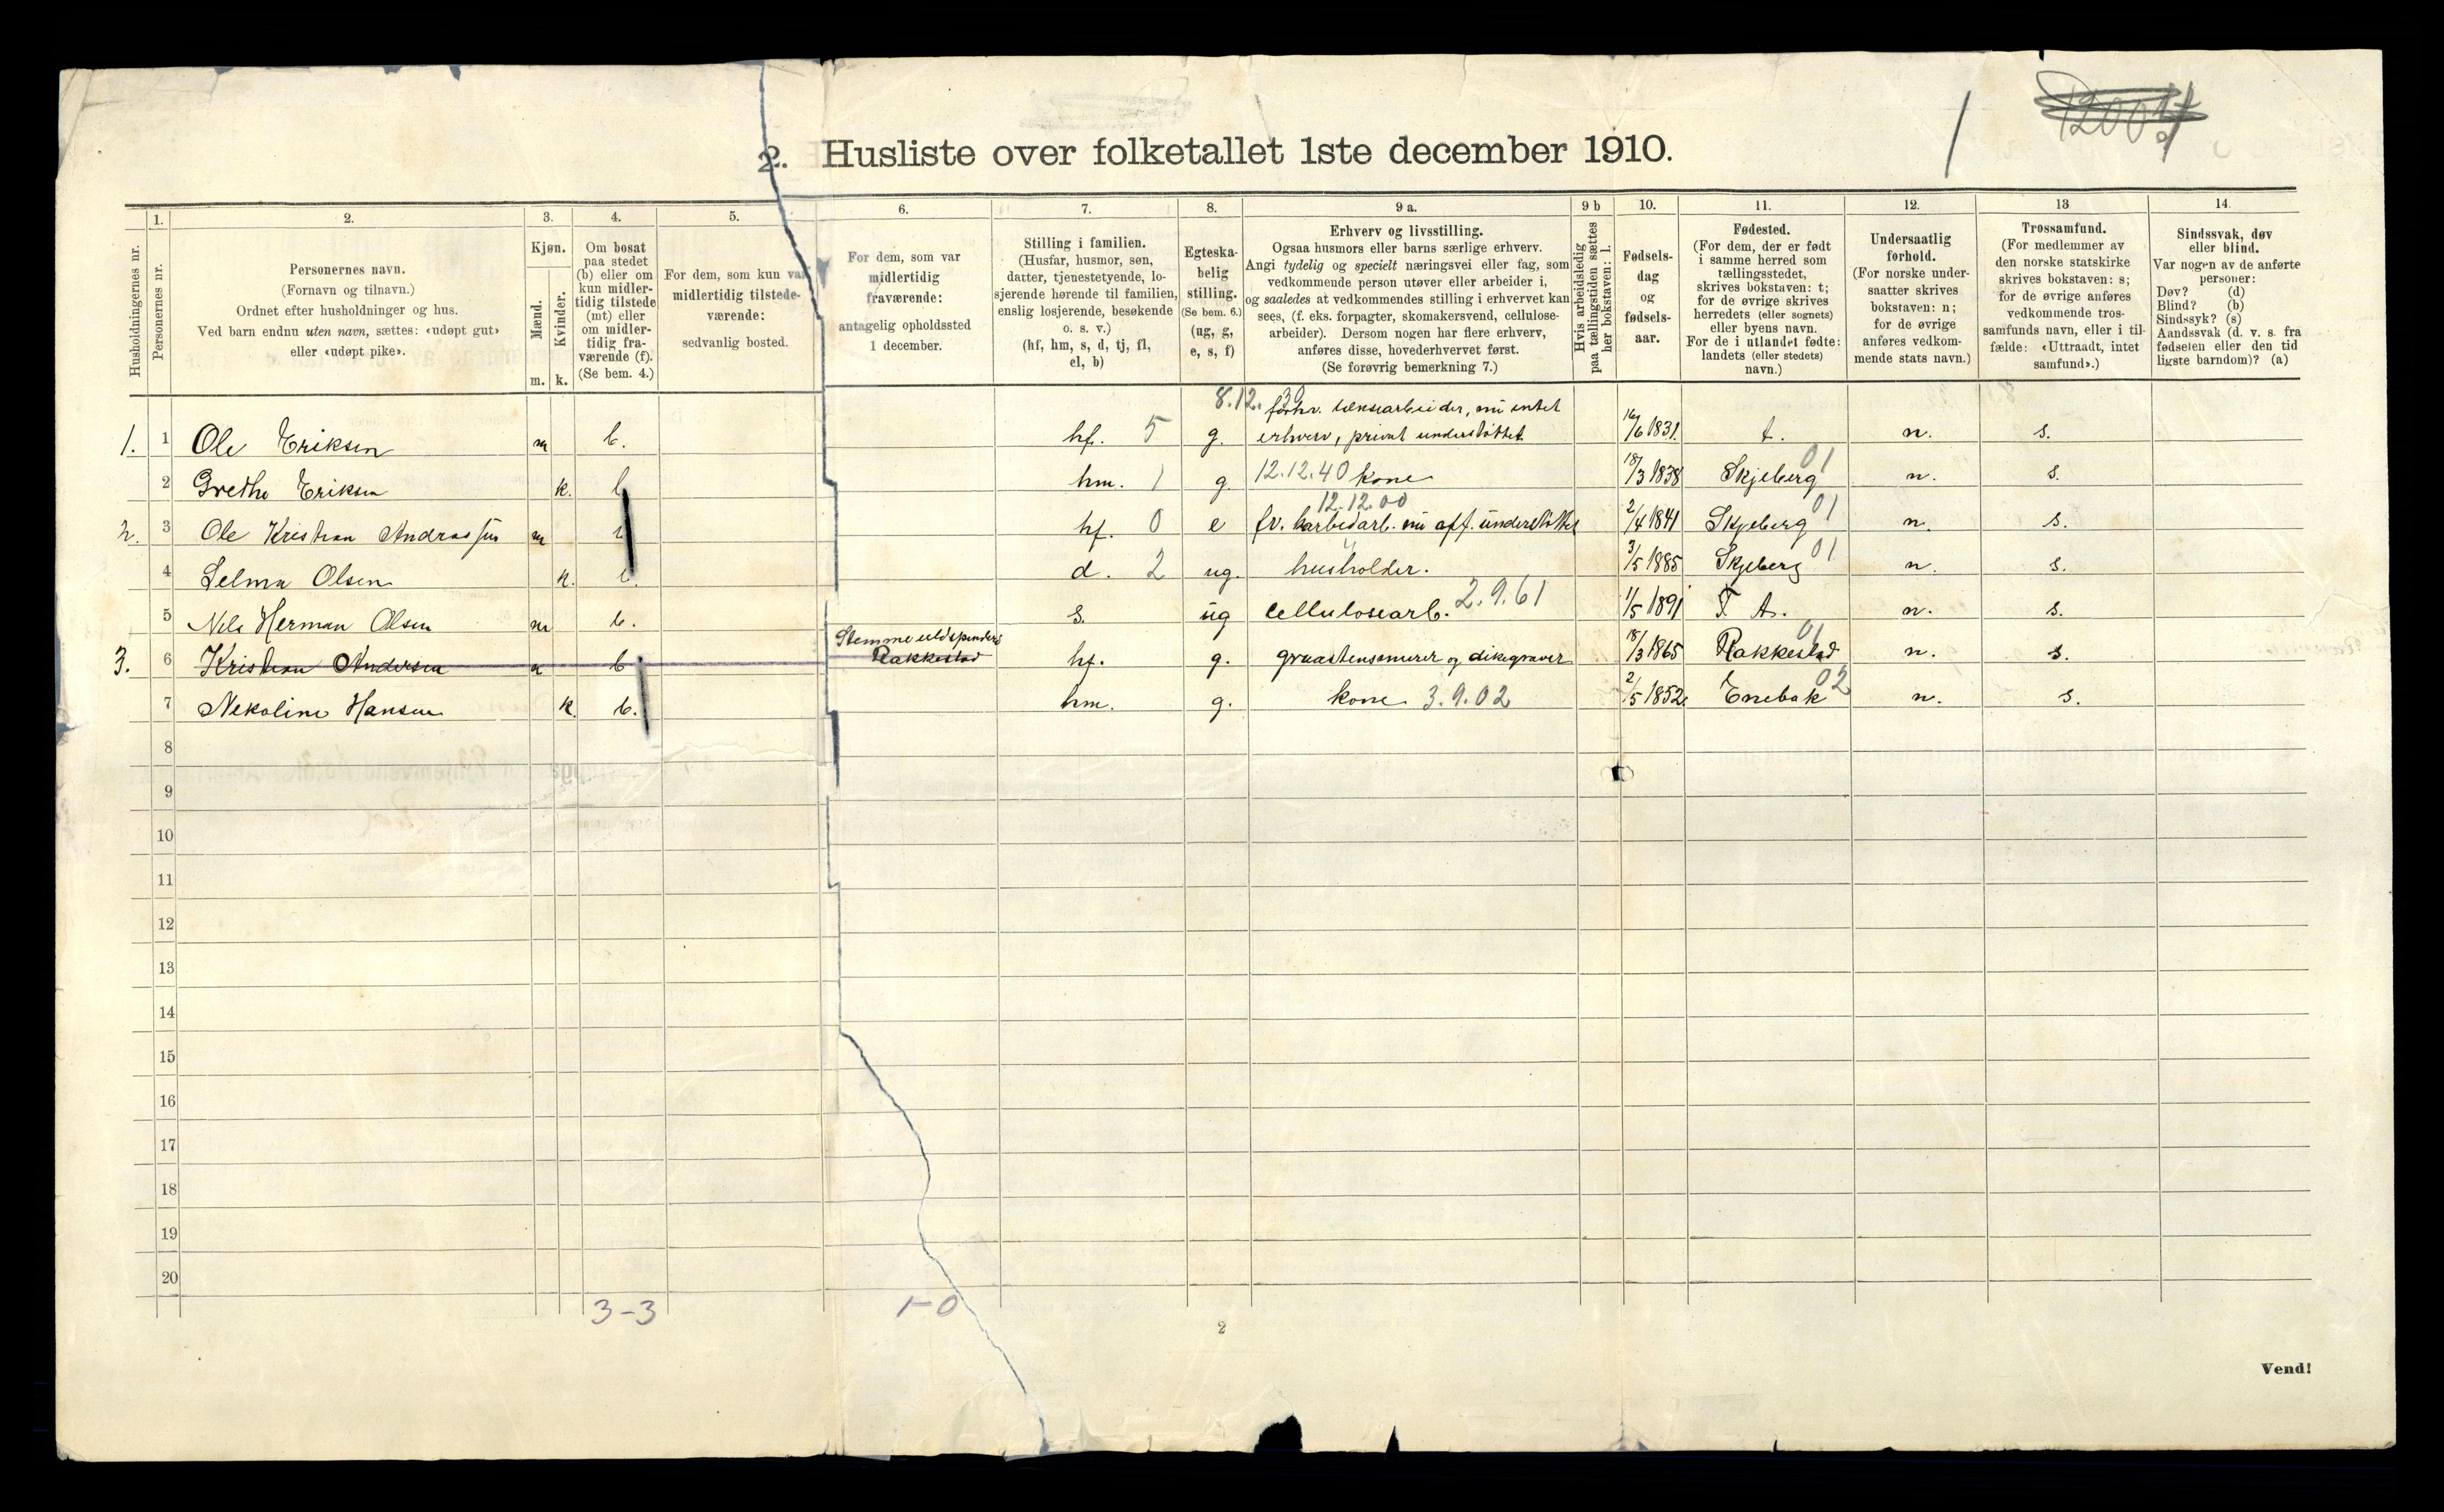 12001
2. Husliste over folketallet 1ste december 1910.
Husholdningernes nr.
1.
Personernes nr.
2.
Personernes navn.
(Fornavn og tilnavn.)
Ordnet efter husholdninger og hus.
Ved barn endnu uten navn, sættes: «udøpt gut»
eller «udøpt pike».
3.
Kjøn.
Mænd.
Kvinder.
m. k.
4.
Om bosat
paa stedet
(b) eller om
kun midler-
tidig tilstede
(mt) eller
om midler-
tidig fra-
værende (f).
(Se bem. 4.)
5.
For dem, som kun var
midlertidig tilstede-
værende:
sedvanlig bosted.
6.
For dem, som var
midlertidig
fraværende:
antagelig opholdssted
1 december.
7.
Stilling i familien.
(Husfar, husmor, søn,
datter, tjenestetyende, lo-
sjerende hørende til familien,
enslig losjerende, besøkende
o. s. v.)
(hf, hm, s, d, tj, fl,
el, b)
8.
Egteska-
belig
stilling.
(Se bem. 6.)
(ug, g,
e, s, f)
9 a.
Erhverv og livsstilling.
Ogsaa husmors eller barns særlige erhverv.
Angi tydelig og specielt næringsvei eller fag, som
vedkommende person utøver eller arbeider i,
og saaledes at vedkommendes stilling i erhvervet kan
sees, (f. eks. forpagter, skomakersvend, cellulose-
arbeider). Dersom nogen har flere erhverv,
anføres disse, hovederhvervet først.
(Se forøvrig bemerkning 7.)
9 b
Hvis arbeidsledig
paa tællingstiden sættes
her bokstaven: l.
10.
Fødsels-
dag
og
fødsels-
aar.
11.
Fødested.
(For dem, der er født
i samme herred som
tællingsstedet,
skrives bokstaven: t;
for de øvrige skrives
herredets (eller sognets)
eller byens navn.
For de i utlandet fødte:
landets (eller stedets)
navn.)
12.
Undersaatlig
forhold.
(For norske under-
saatter skrives
bokstaven: n;
for de øvrige
anføres vedkom-
mende stats navn.)
13
Trossamfund.
(For medlemmer av
den norske statskirke
skrives bokstaven: s;
for de øvrige anføres
vedkommende tros-
samfunds navn, eller i til-
fælde: «Uttraadt, intet
samfund».)
14.
Sindssvak, døv
eller blind.
Var nogen av de anførte
personer:
Døv? (d)
Blind? (b)
Sindssyk? (s)
Aandssvak (d. v. s. fra
fødselen eller den tid
ligste barndom)? (a)
8.12.30
forhv. løensearbeider, nu intet
1. 1 Ole Eriksen m b. hf. 5 g. erhverv, privat understøttet 16/6 1831. t. n. s.
2 Grethe Eriksen k. b hm. 1 g. 12.12.40 kone 18/3 1838 Skjeberg 01 n. s.
12.12.00
2. 3 Ole Kristian Andreassen m b hf. 0 e fv. karbidarb. nu off. understøttet 2/4 1841 Skjeberg 01 n. s.
4 Selma Olsen k. b. d. 2 ug. husholder. 3/5 1885 Skjeberg 01 n. s.
5 Nils Herman Olsen m b. s. ug cellulosearb. 2.9.61 1/5 1891 t. n. s.
Stemme uldspinderi
3. 6 Kristian Andersen m b Rakkestad hf. g. graastensmurer og dikegraver 18/3 1865 Rakkestad 01 n. s.
7 Nekoline Hansen k. b. hm. g. kone 3.9.02 2/5 1852. Enebak 02 n. s.
8
9
10
11
12
13
14
15
16
17
18
19
20
3-3 1-0
2
Vend!